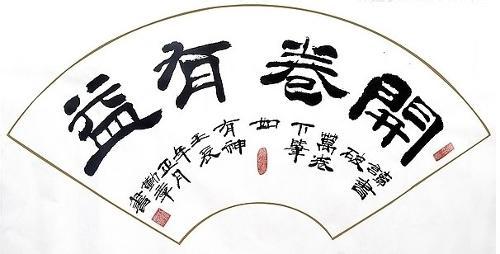 開卷有益
讀書
破
萬卷
下筆
如
有神
壬辰
年月
書